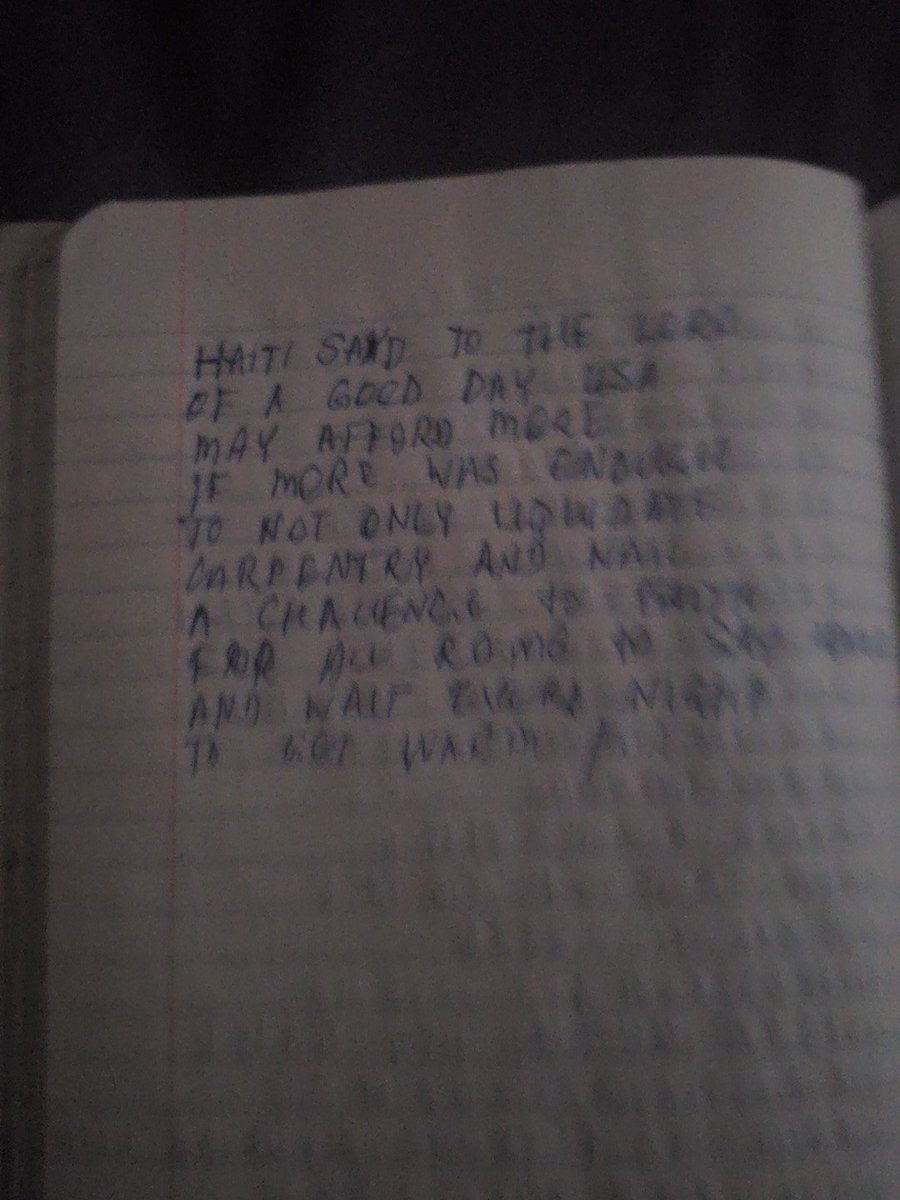 HAITI SAND TO THE LORD
OF A GOOD DAY USA
MAY AFFORD MORE
IF MORE WAS ENOUGH
TO NOT ONLY LIQUIDATE
CARPENTRY AND NAIL
A CHALLENGE TO
FOR ALL TO
AND WAIT EVERY NIGHT
TO GET WARM